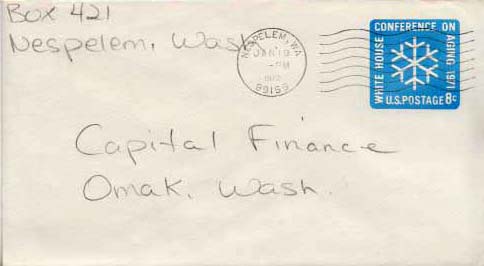 Box 421
Nespelem, Wash
NESPELEM, WA
JAN 19
PM
99155
WHITE HOUSE CONFERENCE ON AGING 1971
U.S. POSTAGE 8c
Capital Finance
Omak, Wash.